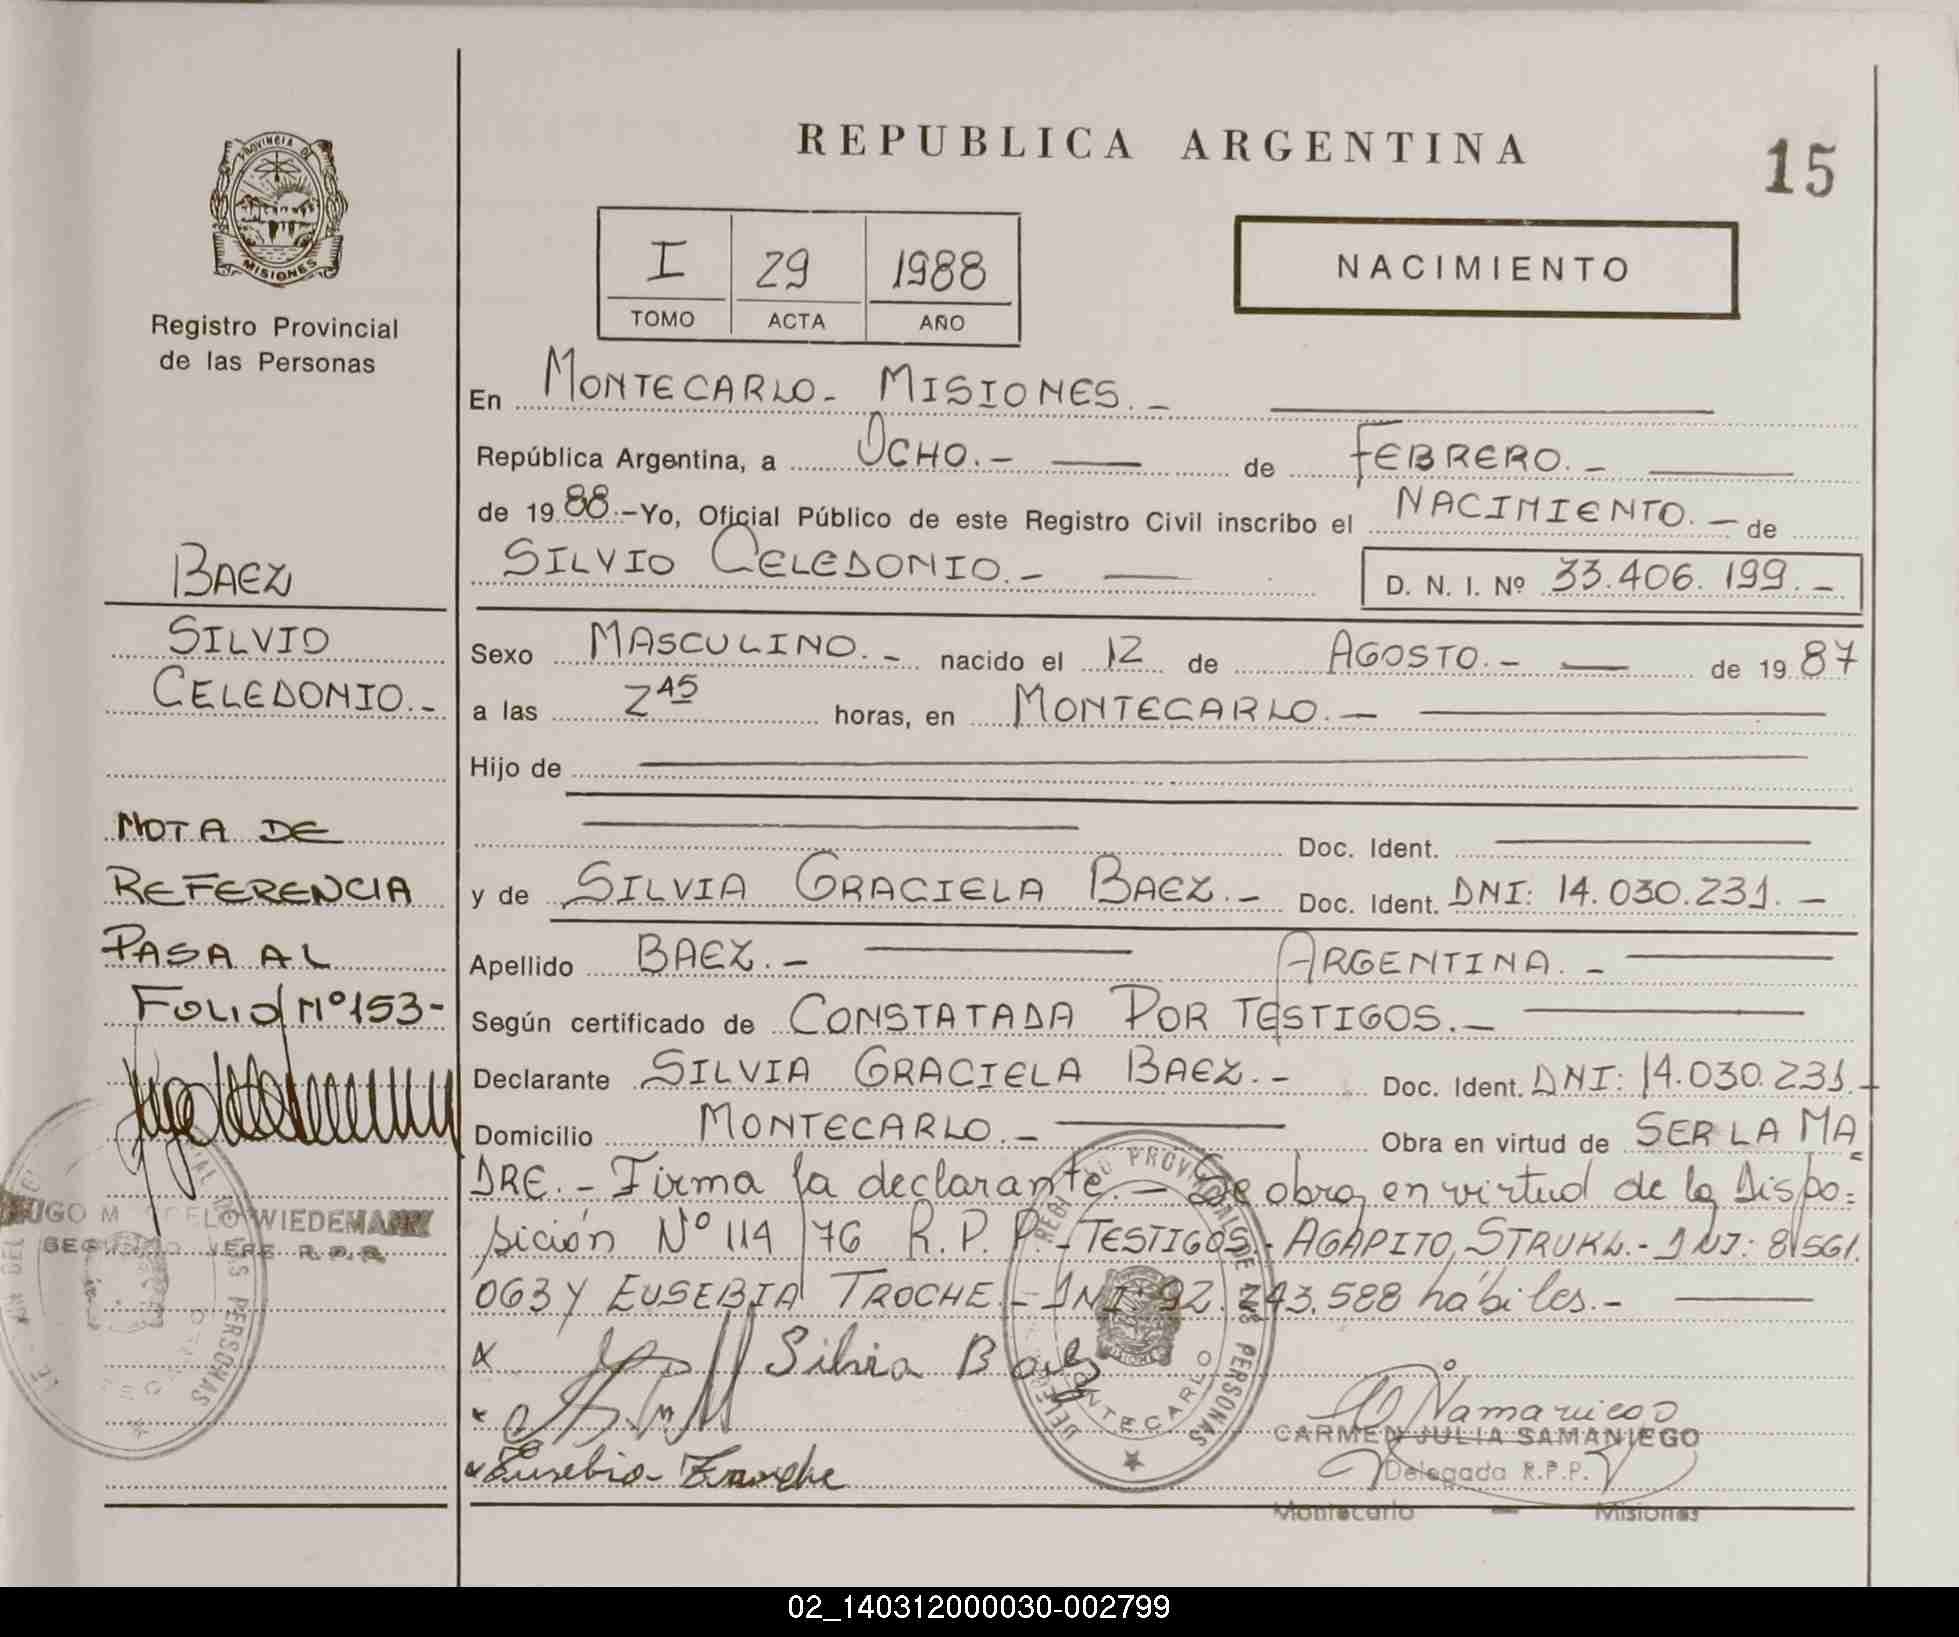 REPUBLICA ARGENTINA
15
PROVINCIA DE
MISIONES
Registro Provincial
de las Personas
I 29 1988
TOMO ACTA AÑO
NACIMIENTO
En MONTECARLO - MISIONES. -
República Argentina, a OCHO. - de FEBRERO. -
de 19 88. - Yo, Oficial Público de este Registro Civil inscribo el NACIMIENTO. - de
SILVIO CELEDONIO. - D. N. I. Nº 33.406.199. -
BAEZ
SILVIO
CELEDONIO. -
Sexo MASCULINO. - nacido el 12 de AGOSTO. - de 19 87
a las 2 45 horas, en MONTECARLO. -
Hijo de
Doc. Ident.
y de SILVIA GRACIELA BAEZ. - Doc. Ident. DNI: 14.030.231. -
Apellido BAEZ. - ARGENTINA. -
Según certificado de CONSTATADA POR TESTIGOS. -
Declarante SILVIA GRACIELA BAEZ. - Doc. Ident. DNI: 14.030.231. -
Domicilio MONTECARLO. - Obra en virtud de SER LA MA=
DRE. - Firma la declarante. - Se obra en virtud de la Dispo=
sición Nº 114/76 R.P.P. - TESTIGOS. - AGAPITO STRUKL. - DNI: 8.561.
063 Y EUSEBIA TROCHE. - DNI: 92.243.588 hábiles. -
NOTA DE
REFERENCIA
PASA AL
FOLIO Nº 153-
HUGO M WIEDEMANN
R.P.P.
PERSONAS
x Silvia Baez
x
x Eusebia Troche
DELEG
MONTECARLO
REGISTRO PROVINCIAL DE LAS PERSONAS
Samaniego
CARMEN JULIA SAMANIEGO
Delegada R.P.P.
Montecarlo - Misiones
02_140312000030-002799